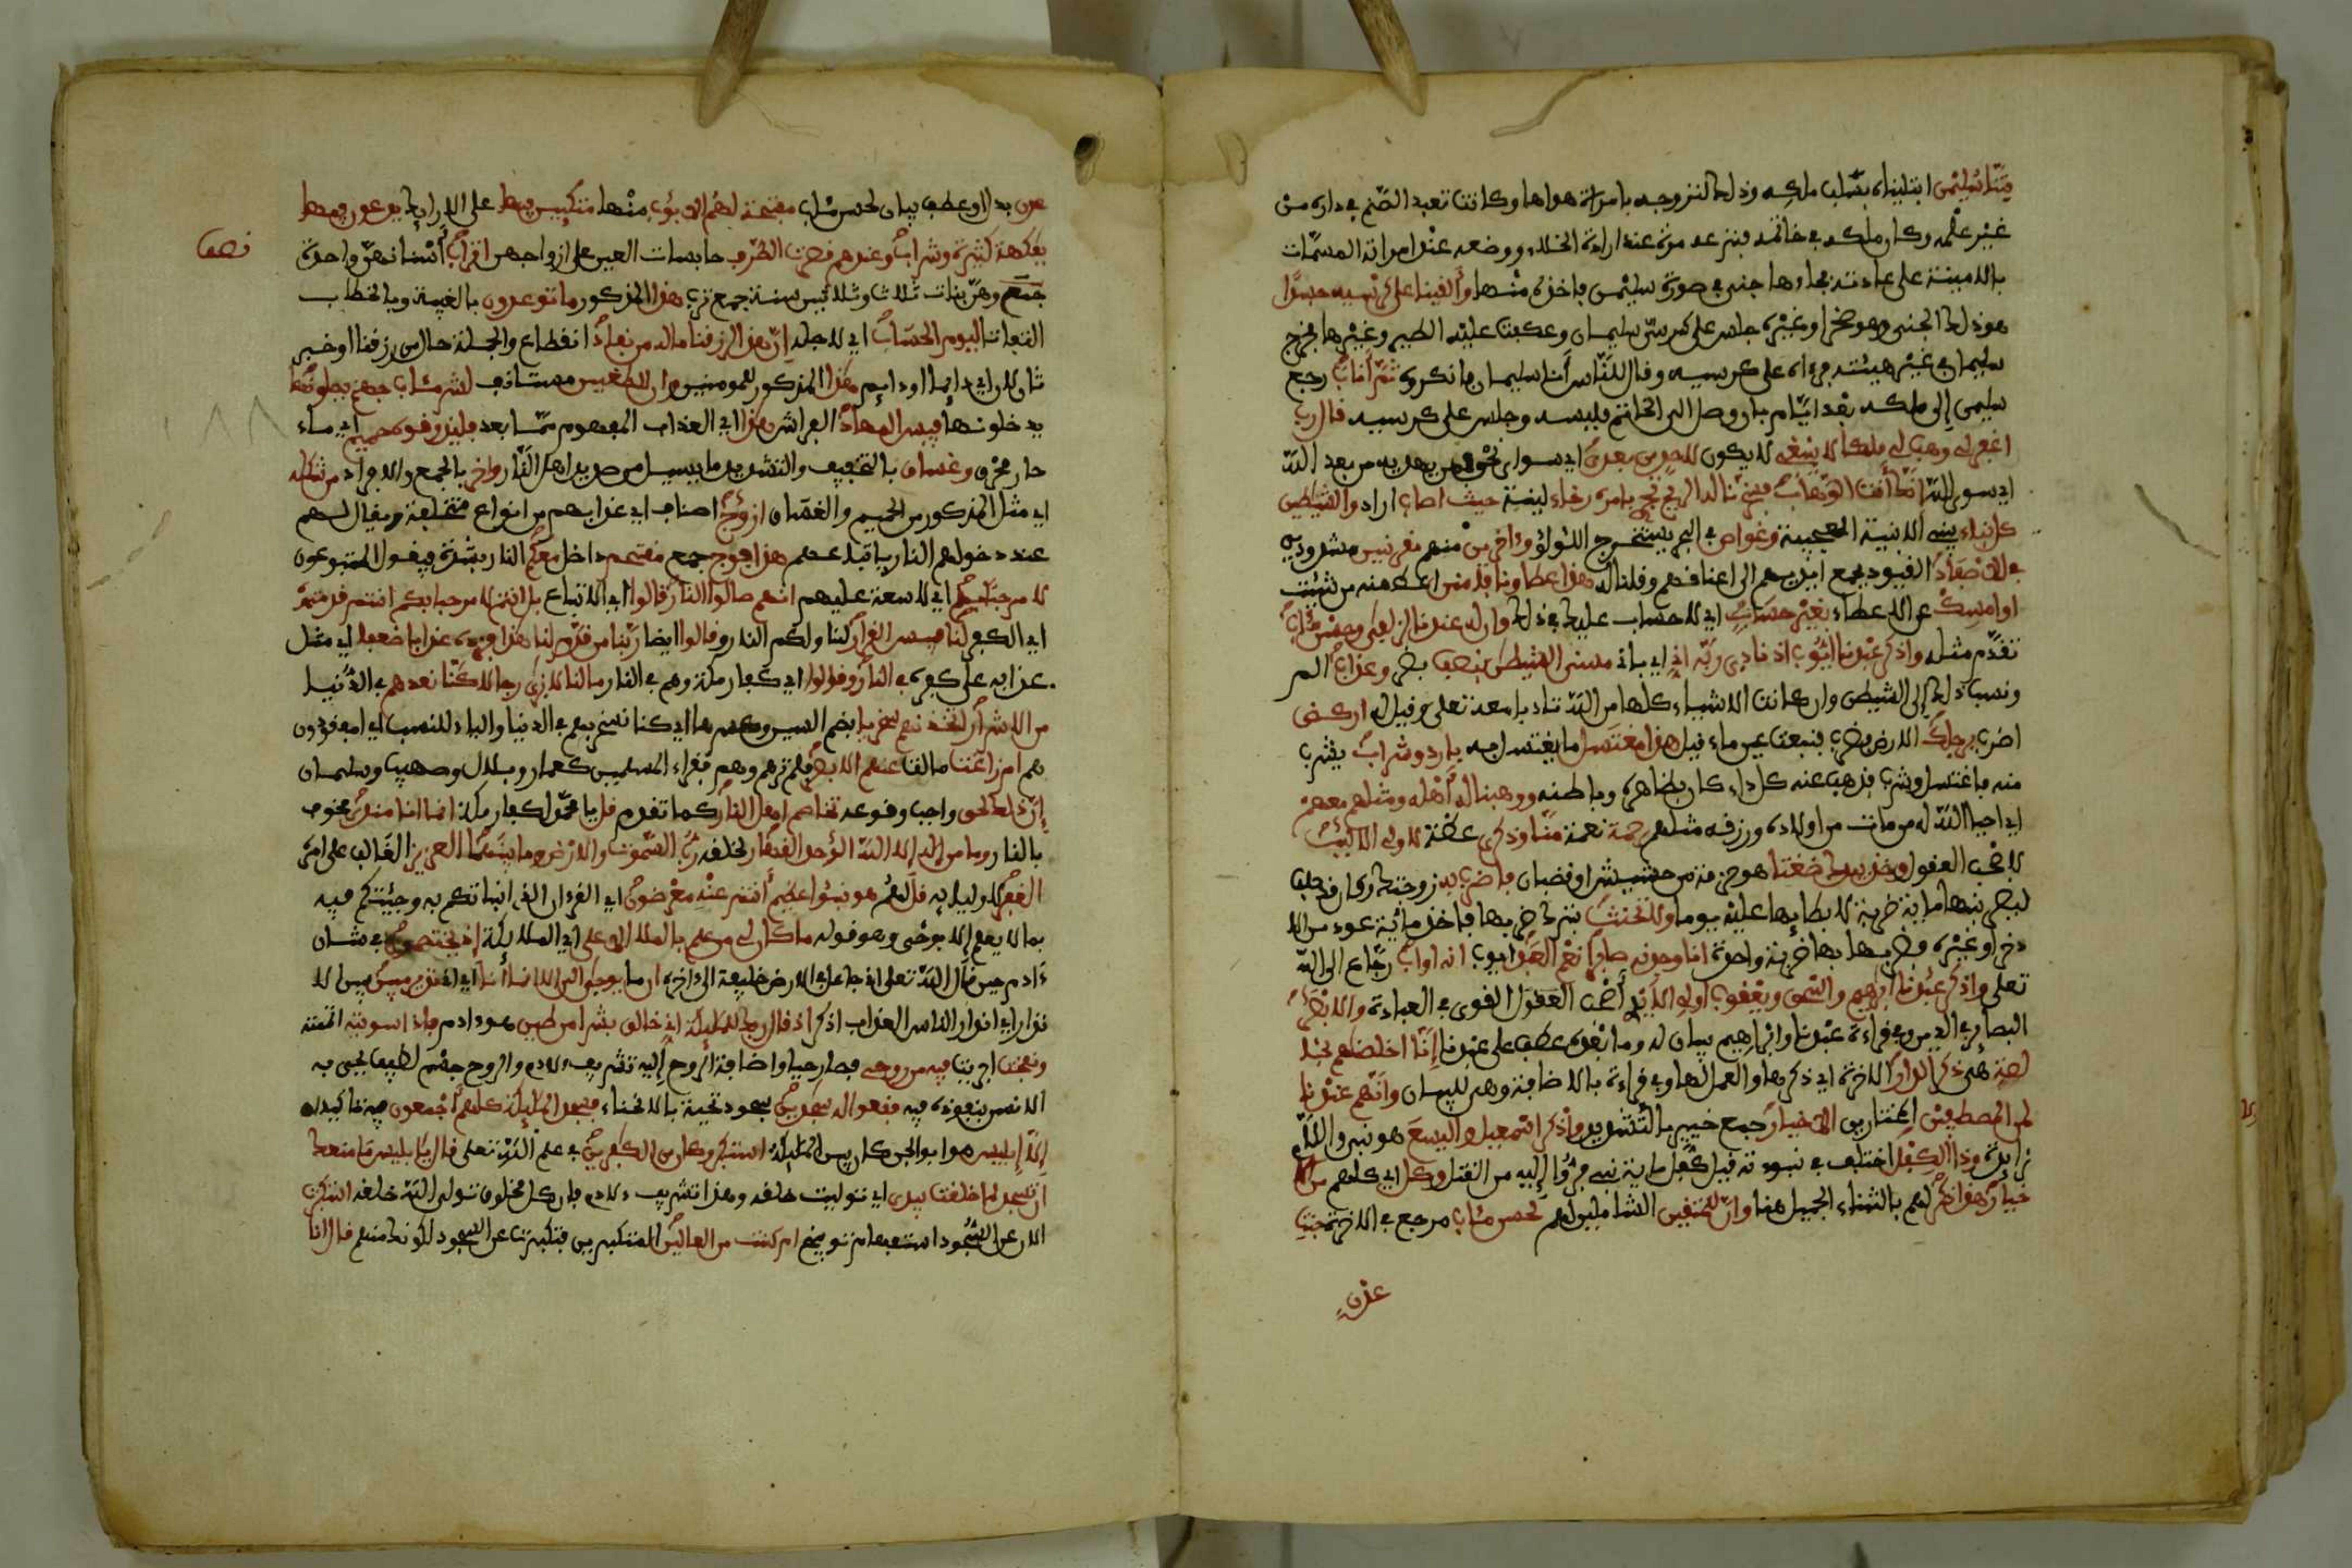 فتنا سليمن ابتليناه بسلب ملكه وذلك لتزوجه بامراة هواها وكانت تعبد الصنم في داره من
غير علمه وكان ملكه في خاتمه فنزعه مرة عند ارادة الخلاء ووضعه عند امراته المسمات
بالامينة على عادته فجاءها جني في صورة سليمن فاخذه منها وألقينا على كرسيه جسدا
هو ذلك الجني وهو صخر او غيره جلس على كرسي سليمان وعكفت عليه الطير وغيرها فخرج
سليمان في غير هيئته فرءاه على كرسيه وقال للناس أنا سليمان فانكروه ثم أناب رجع
سليمن إلى ملكه بعد ايام بان وصل الى الخاتم فلبسه وجلس على كرسيه قال رب
اغفر لي وهب لي ملكا لا ينبغي لا يكون لاحد من بعدي اي سواي نحو فمن يهديه من بعد الله
اي سوى الله إنك أنت الوهاب فسخرنا له الريح تجري بامره رخاء لينة حيث اصاب اراد والشيطين
كل بناء يبني الابنية العجيبة وغواص في البحر يستخرج اللؤلؤ وءاخرين منهم مقرنين مشدودين
في الاصفاد القيود بجمع ايديهم الى اعناقهم وقلنا له هذا عطاؤنا فامنن اعط منه من شئت
او امسك عن الاعطاء بغير حساب اي لا حساب عليك في ذلك وان له عندنا لزلفى وحسن مئاب
تقدم مثله واذكر عبدنا أيوب اذ نادى ربه أني اي باني مسني الشيطن بنصب بضر وعذاب الم
ونسب ذلك إلى الشيطن وان كانت الاشياء كلها من الله تادبا معه تعلى وقيل له اركض
اضرب برجلك الارض فضرب فنبعت عين ماء فقيل هذا مغتسل ما يغتسل به بارد وشراب يشرب
منه فاغتسل وشرب فذهب عنه كل داء كان بظاهره وباطنه ووهبنا له أهله ومثلهم معهم
اي احيا الله له من مات من اولاده ورزقه مثلهم رحمة نعمة منا وذكرى عظة لاولي الالبب
لاصحب العقول وخذ بيدك ضغثا هو حزمة من حشيش او قضبان فاضرب به زوجتك وكان قد حلف
ليضربنها مائة ضربة لابطائها عليه يوما ولا تحنث بترك ضربها فاخذ مائة عود من الا
ذخر او غيره فضربها بها ضربة واحدة انا وجدنه صابرا نعم العبد ايوب انه اواب رجاع الى الله
تعلى واذكر عبدنا ابرهيم واسحق ويعقوب أولي الايدي أصحب العقول القوى في العبادة والابصر
البصائر في الدين وفي قراءة عبدنا وابراهيم بيان له وما بعده عطف على عبدنا إنا اخلصنهم بخلد
لصة هي ذكرى الدار الاخرة اي ذكرها والعمل لها وفي قراءة بالاضافة وهي للبيان وانهم عندنا
لمن المصطفين المختارين الاخيار جمع خير بالتشديد واذكر اسمعيل واليسع هو نبي واللام
زائدة وذا الكفل اختلف في نبوءته قيل كفل مائة نبي فروا إليه من القتل وكل اي كلهم من الا
خيار هذا ذكر لهم بالثناء الجميل هنا وان للمتقين الشاملين لهم لحسن مئاب مرجع في الاخرة جنت
عدن
عدن بدل او عطف بيان لحسن مئاب مفتحة لهم الابوب منها متكئين فيها على الارائك يدعون فيها
بفكهة كثيرة وشراب وعندهم قصرت الطرف حابسات العين على ازواجهن اتراب أسنانهن واحدة
نصف
جمع وهن بنات ثلاث وثلاثين سنة جمع ترب هذا المذكور ما توعدون بالغيبة وبالخطاب
التفاتا ليوم الحساب اي لاجله إن هذا لرزقنا ماله من نفاد انقطاع والجملة حال من رزقنا او خبر
ثان لان اي دائما او دائم هذا المذكور للمومنين وان للطغين مستانف لشر مئاب جهنم يصلونها
يدخلونها فبيس المهاد الفراش هذا اي العذاب المفهوم مما بعد فليذوقوه حميم اي ماء
حار محرق وغساق بالتخفيف والتشديد ما يسيل من صديد اهل النار واخر بالجمع والافراد من شكله
اي مثل المذكور من الحميم والغساق ازوج اصناف اي عذابهم من انواع مختلفة ويقال لهم
عند دخولهم النار باتباعهم هذا فوج جمع مقتحم داخل معكم النار بشدة فيقول المتبوعون
لا مرحبا بهم اي لا سعة عليهم انهم صالوا النار قالوا اي الاتباع بل انتم لا مرحبا بكم انتم قدمتمو
اي الكفر لنا فبيس القرار لنا ولكم النار وقالوا ايضا ربنا من قدم لنا هذا فزده عذابا ضعفا اي مثل
عذابه على كفره في النار وقالوا اي كفار مكة وهم في النار ما لنا لا نرى رجالا كنا نعدهم في الدنيا
من الاشرار أتخذنهم سخريا بضم السين وكسرها اي كنا نسخر بهم في الدنيا والياء للنسب اي امفقودون
هم ام زاغت مالت عنهم الابصر فلم نرهم وهم فقراء المسلمين كعمار وبلال وصهيب وسلمان
إن ذلك لحق واجب وقوعه تخاصم اهل النار كما تقدم قل يا محمد لكفار مكة انما انا منذر مخوف
بالنار وما من إله إلا الله الوحد القهار لخلقه رب السموت والارض وما بينهما العزيز الغالب على امره
الغفر لاوليائه قل لهم هو نبؤا عظيم أنتم عنه معرضون اي القرءان الذي انباتكم به وجئتكم فيه
بما لا يعلم إلا بوحي وهو قوله ما كان لي من علم بالملا الاعلى اي الملائكة إذ يختصمون في شان
ءادم حين قال الله تعلى اني جاعل في الارض خليفة الى ءاخره ان ما يوحى الي الا انما أنا اي اني نذير مبين بين الا
نذار اي انذار الناس العذاب اذكر اذ قال ربك للملئكة اني خالق بشرا من طين هو ءادم فاذا سويته اتممته
ونفخت اجريت فيه من روحي فصار حيا واضافة الروح إليه تشريف لادم والروح جسم لطيف يحيى به
الانسن بنفوذه فيه فقعوا له سجدين سجود تحية بالانحناء فسجد الملئكة كلهم أجمعون فيه تاكيدان
إلا إبليس هو ابو الجن كان بين الملئكة استكبر وكان من الكفرين في علم الله تعلى قال يا إبليس ما منعك
ان تسجد لما خلقت بيدي اي توليت خلقه وهذا تشريف لادم فان كل مخلوق تولى الله خلقه استكبرت
الان عن السجود استفهام توبيخ ام كنت من العالين المتكبرين فتكبرت عن السجود لكونك منهم قال انا